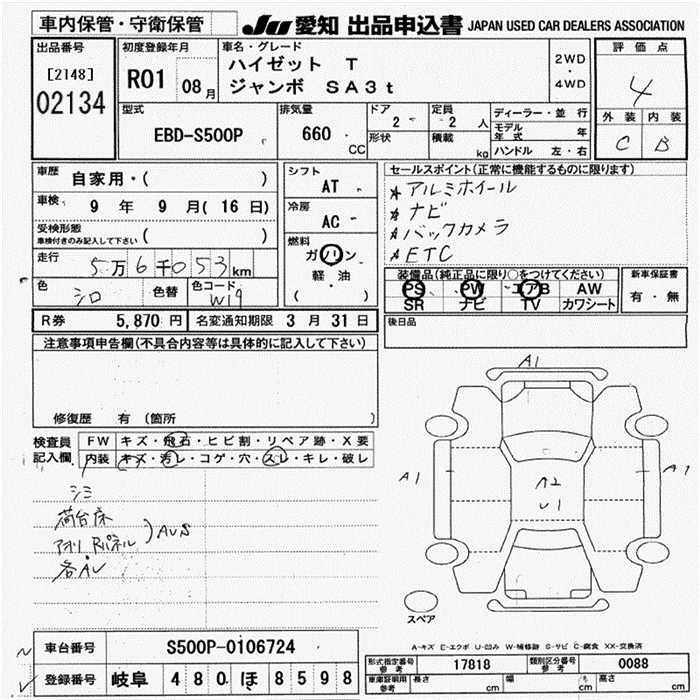 車内保管・守衛保管
JU 愛知 出品申込書 JAPAN USED CAR DEALERS ASSOCIATION
出品番号
[2148]
02134
初度登録年月
R01 08月
車名・グレード
ハイゼット T
ジャンボ SA3t
2WD
・
4WD
評価点
4
外装 内装
C B
型式
EBD-S500P
排気量
660 CC
ドア
2
形状
定員
2 人
積載
kg
ディーラー・並行
モデル年式 年
ハンドル 左・右
車歴
自家用・( )
車検
9 年 9 月 (16 日)
受検形態
車検付きのみ記入して下さい ( )
走行
5万6千053km
色
シロ
色替
色コード
W19
シフト
AT
冷房
AC
燃料
ガソリン
軽・油
( )
セールスポイント(正常に機能するものに限ります)
★アルミホイール
★ナビ
★バックカメラ
★ETC
装備品(純正品に限り○をつけてください)
PS PW エアB AW
SR ナビ TV カワシート
新車保証書
有・無
後日品
R券 5,870円 名変通知期限 3月31日
注意事項申告欄(不具合内容等は具体的に記入して下さい)
修復歴 有 (箇所 )
検査員
記入欄
FW キズ・飛石・ヒビ割・リペア跡・X要
内装 キズ・汚レ・コゲ・穴・スレ・キレ・破レ
シミ
荷台床
アオリ Rパネル )AUS
各AU
A1
A1
A2
U1
A1
スペア
A-キズ E-エクボ U-凹み W-補修跡 S-サビ C-腐食 XX-交換済
車台番号 S500P-0106724
登録番号 岐阜 480 ほ 8598
形式指定番号
参考
17818
類別区分番号
参考
0088
車庫証明用
参考
長さ cm 幅 cm 高さ cm